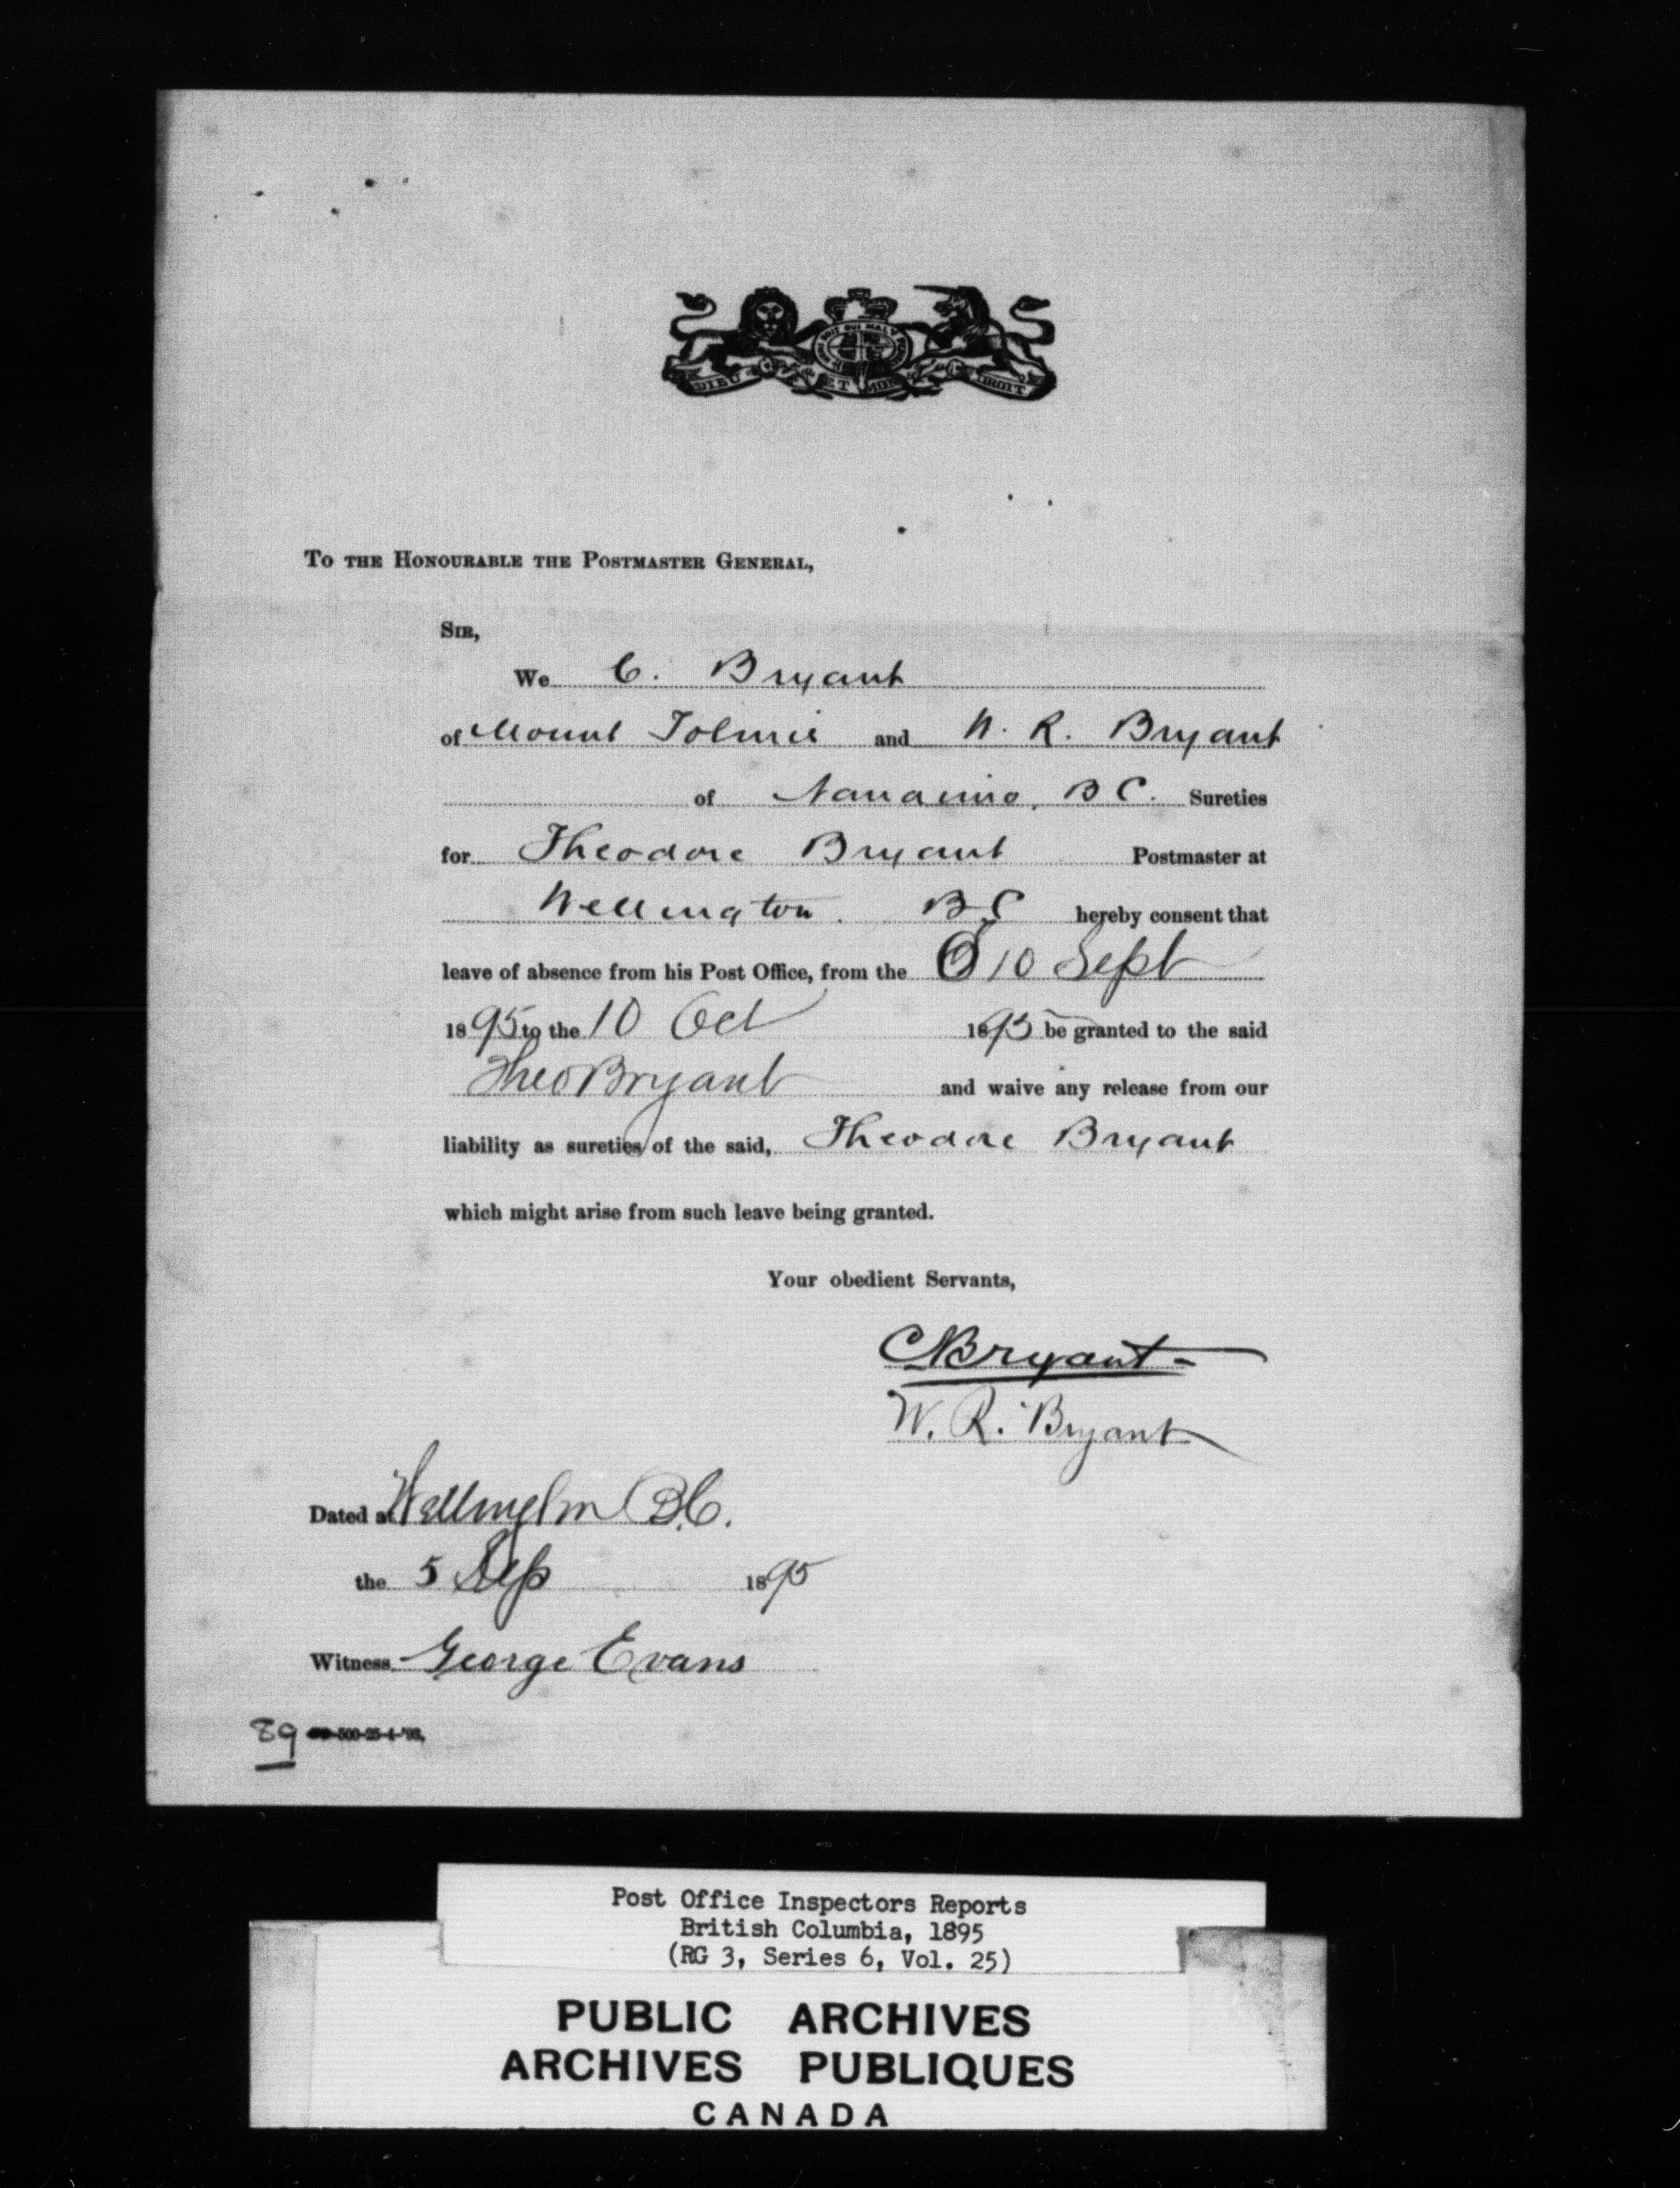 HONI SOIT QUI MAL Y PENSE
DIEU ET MON DROIT
TO THE HONOURABLE THE POSTMASTER GENERAL,
SIR,
We C. Bryant
of Mount Tolmie and W. R. Bryant
of Nanaimo, B C. Sureties
for Theodore Bryant Postmaster at
Wellington. B C hereby consent that
leave of absence from his Post Office, from the 10 Sept
1895 to the 10 Oct 1895 be granted to the said
Theo Bryant and waive any release from our
liability as sureties of the said, Theodore Bryant
which might arise from such leave being granted.
Your obedient Servants,
C Bryant
W. R. Bryant
Dated at Wellington B.C.
the 5 Sep 1895
Witness George Evans
89 500-25-4-'93.
Post Office Inspectors Reports
British Columbia, 1895
(RG 3, Series 6, Vol. 25)
PUBLIC ARCHIVES
ARCHIVES PUBLIQUES
CANADA